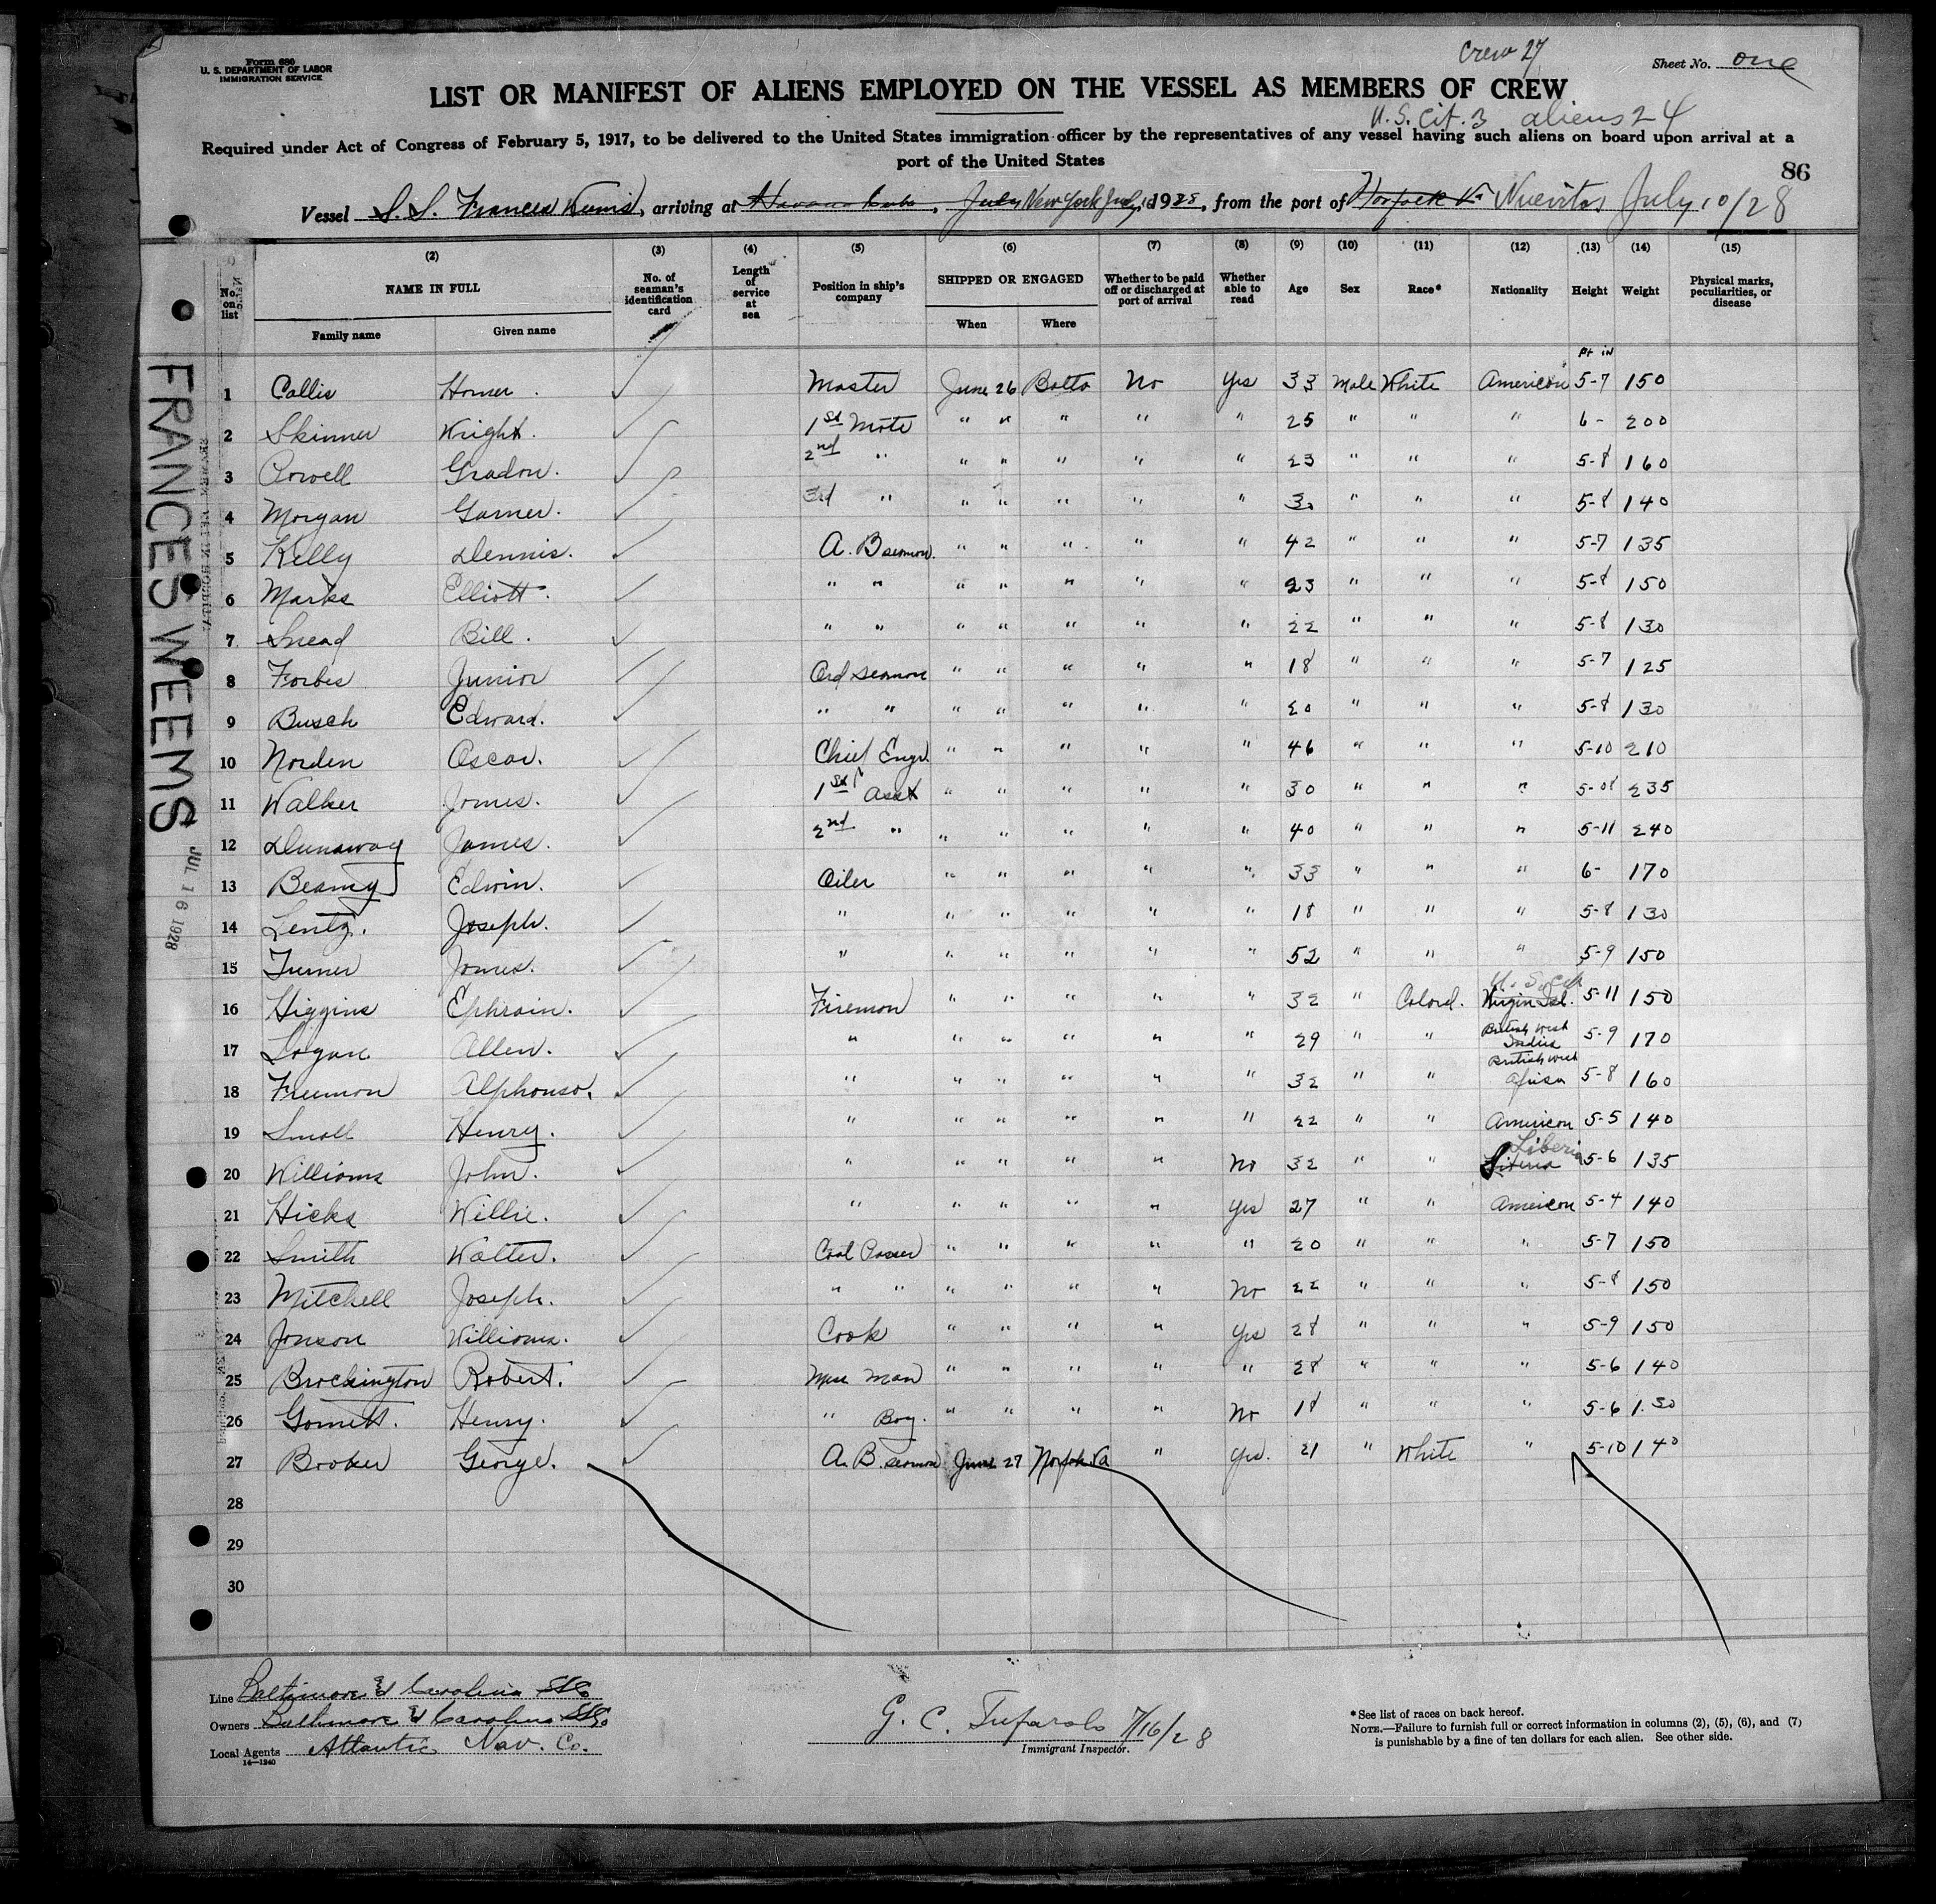 Form 680
U. S. DEPARTMENT OF LABOR
IMMIGRATION SERVICE
Crew 27
Sheet No. one
LIST OR MANIFEST OF ALIENS EMPLOYED ON THE VESSEL AS MEMBERS OF CREW
U.S. Cit. 3 aliens 24
Required under Act of Congress of February 5, 1917, to be delivered to the United States immigration officer by the representatives of any vessel having such aliens on board upon arrival at a
port of the United States
86
Vessel S.S. Frances Weems, arriving at Havana Cuba, July New York July 16 1928, from the port of Norfolk Va Nuevitas July 10/28
(2) (3) (4) (5) (6) (7) (8) (9) (10) (11) (12) (13) (14) (15)
No. on list
NAME IN FULL
Family name
Given name
No. of seaman's identification card
Length of service at sea
Position in ship's company
SHIPPED OR ENGAGED
When
Where
Whether to be paid off or discharged at port of arrival
Whether able to read
Age
Sex
Race*
Nationality
Height
Weight
Physical marks, peculiarities, or disease
Ft in
1 Callis Homer. Master June 26 Balto No Yes 33 Male White American 5-7 150
2 Skinner Wright. 1st Mate " " " " " 25 " " " 6- 200
3 Powell Gradon. 2nd " " " " " " 23 " " " 5-8 160
4 Morgan Garner. 3rd " " " " " " 30 " " " 5-8 140
5 Kelly Dennis. A. B seaman. " " " " " 42 " " " 5-7 135
6 Marks Elliott. " " " " " " " 23 " " " 5-8 150
7 Snead Bill. " " " " " " " 22 " " " 5-8 130
8 Forbes Junior Ord seaman " " " " " 18 " " " 5-7 125
9 Busch Edward. " " " " " " " 20 " " " 5-8 130
10 Norden Oscar. Chief Engr. " " " " " 46 " " " 5-10 210
11 Walker James. 1st Asst " " " " " 30 " " " 5-08 235
12 Dunaway James. 2nd " " " " " " 40 " " " 5-11 240
13 Beamy Edwin. Oiler " " " " " 33 " " " 6- 170
14 Lentz. Joseph. " " " " " " 18 " " " 5-8 130
15 Turner James. " " " " " " 52 " " " 5-9 150
16 Higgins Ephrain. Fireman " " " " " 32 " Colord. U.S. Cit Virgin Isl. 5-11 150
17 Logan Allen. " " " " " " 29 " " British West Indies 5-9 170
18 Freeman Alphonso. " " " " " " 32 " " British West Africa 5-8 160
19 Small Henry. " " " " " " 22 " " American 5-5 140
20 Williams John. " " " " " No 32 " " Liberia 5-6 135
21 Hicks Willie. " " " " " Yes 27 " " American 5-4 140
22 Smith Walter. Coal Passer " " " " " 20 " " " 5-7 150
23 Mitchell Joseph. " " " " " " No 22 " " " 5-8 150
24 Jonson Williams. Cook " " " " Yes 28 " " " 5-9 150
25 Brockington Robert. Mess Man " " " " " 28 " " " 5-6 140
26 Henry. " Boy. " " " " No 18 " " " 5-6 130
27 Booker George. A. B. seaman June 27 Norfolk Va " Yes. 21 " White " 5-10 140
28
29
30
FRANCES WEEMS
JUL 16 1928
Line Baltimore & Carolina SS Co
Owners Baltimore & Carolina SS Co
Local Agents Atlantic Nav. Co.
14—1240
G. C. Tufarolo 7/16/28
Immigrant Inspector.
*See list of races on back hereof.
NOTE.—Failure to furnish full or correct information in columns (2), (5), (6), and (7)
is punishable by a fine of ten dollars for each alien. See other side.